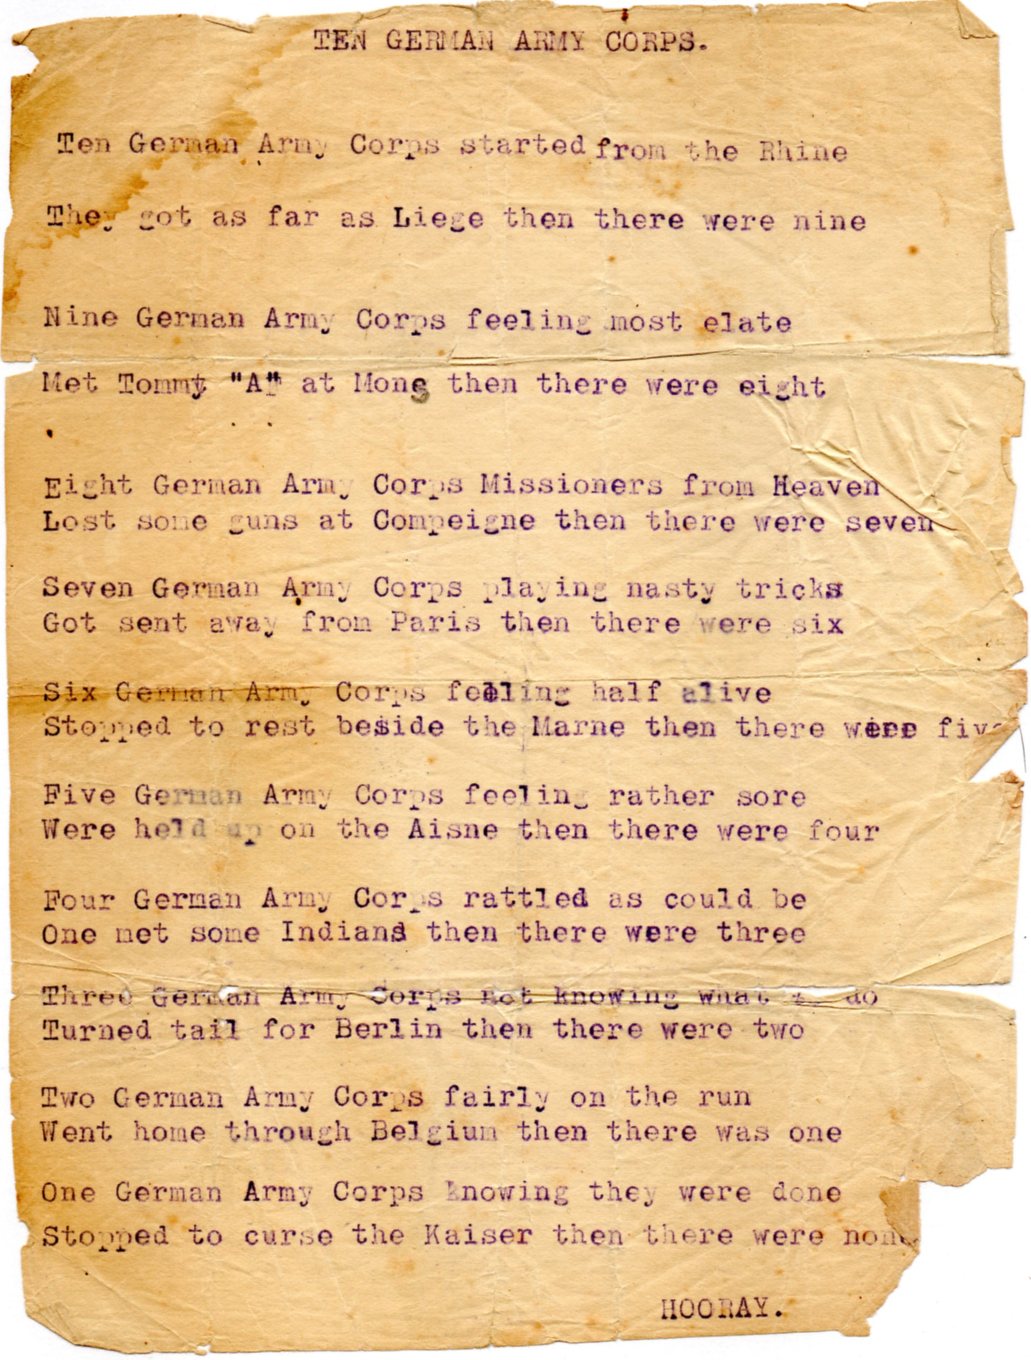 TEN GERMAN ARMY CORPS.
Ten German Army Corps started from the Rhine
They got as far as Liege then there were nine
Nine German Army Corps feeling most elate
Met Tommy "A" at Mons then there were eight
Eight German Army Corps Missioners from Heaven
Lost some guns at Compeigne then there were seven
Seven German Army Corps playing nasty tricks
Got sent away from Paris then there were six
Six German Army Corps feeling half alive
Stopped to rest beside the Marne then there were five
Five German Army Corps feeling rather sore
Were held up on the Aisne then there were four
Four German Army Corps rattled as could be
One met some Indians then there were three
Three German Army Corps not knowing what to do
Turned tail for Berlin then there were two
Two German Army Corps fairly on the run
Went home through Belgium then there was one
One German Army Corps knowing they were done
Stopped to curse the Kaiser then there were none
HOORAY.